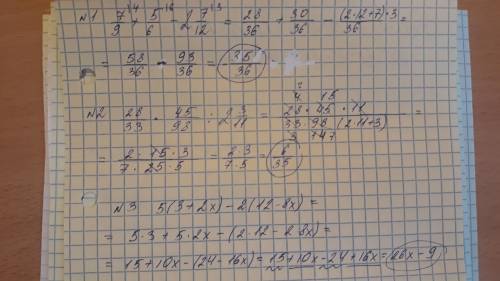 №1 7/9^{\4} + 5/6^{\6} - 2 7/12^{\3} = 28/36 + 30/36 - (2·12+7)·3/36 =
= 58/36 - 93/36 = 35/36
№2 28/33 · 45/98 : 2 3/11 = 28·45·11/33·98·(2·11+3) =
= 2·15·3/7·25·5 = 2·3/7·5 = 6/35
№3 5(3+2x)-2(12-8x)=
= 5·3+5·2x-(2·12-2·8x)=
= 15+10x-(24-16x)=15+10x-24+16x=26x-9